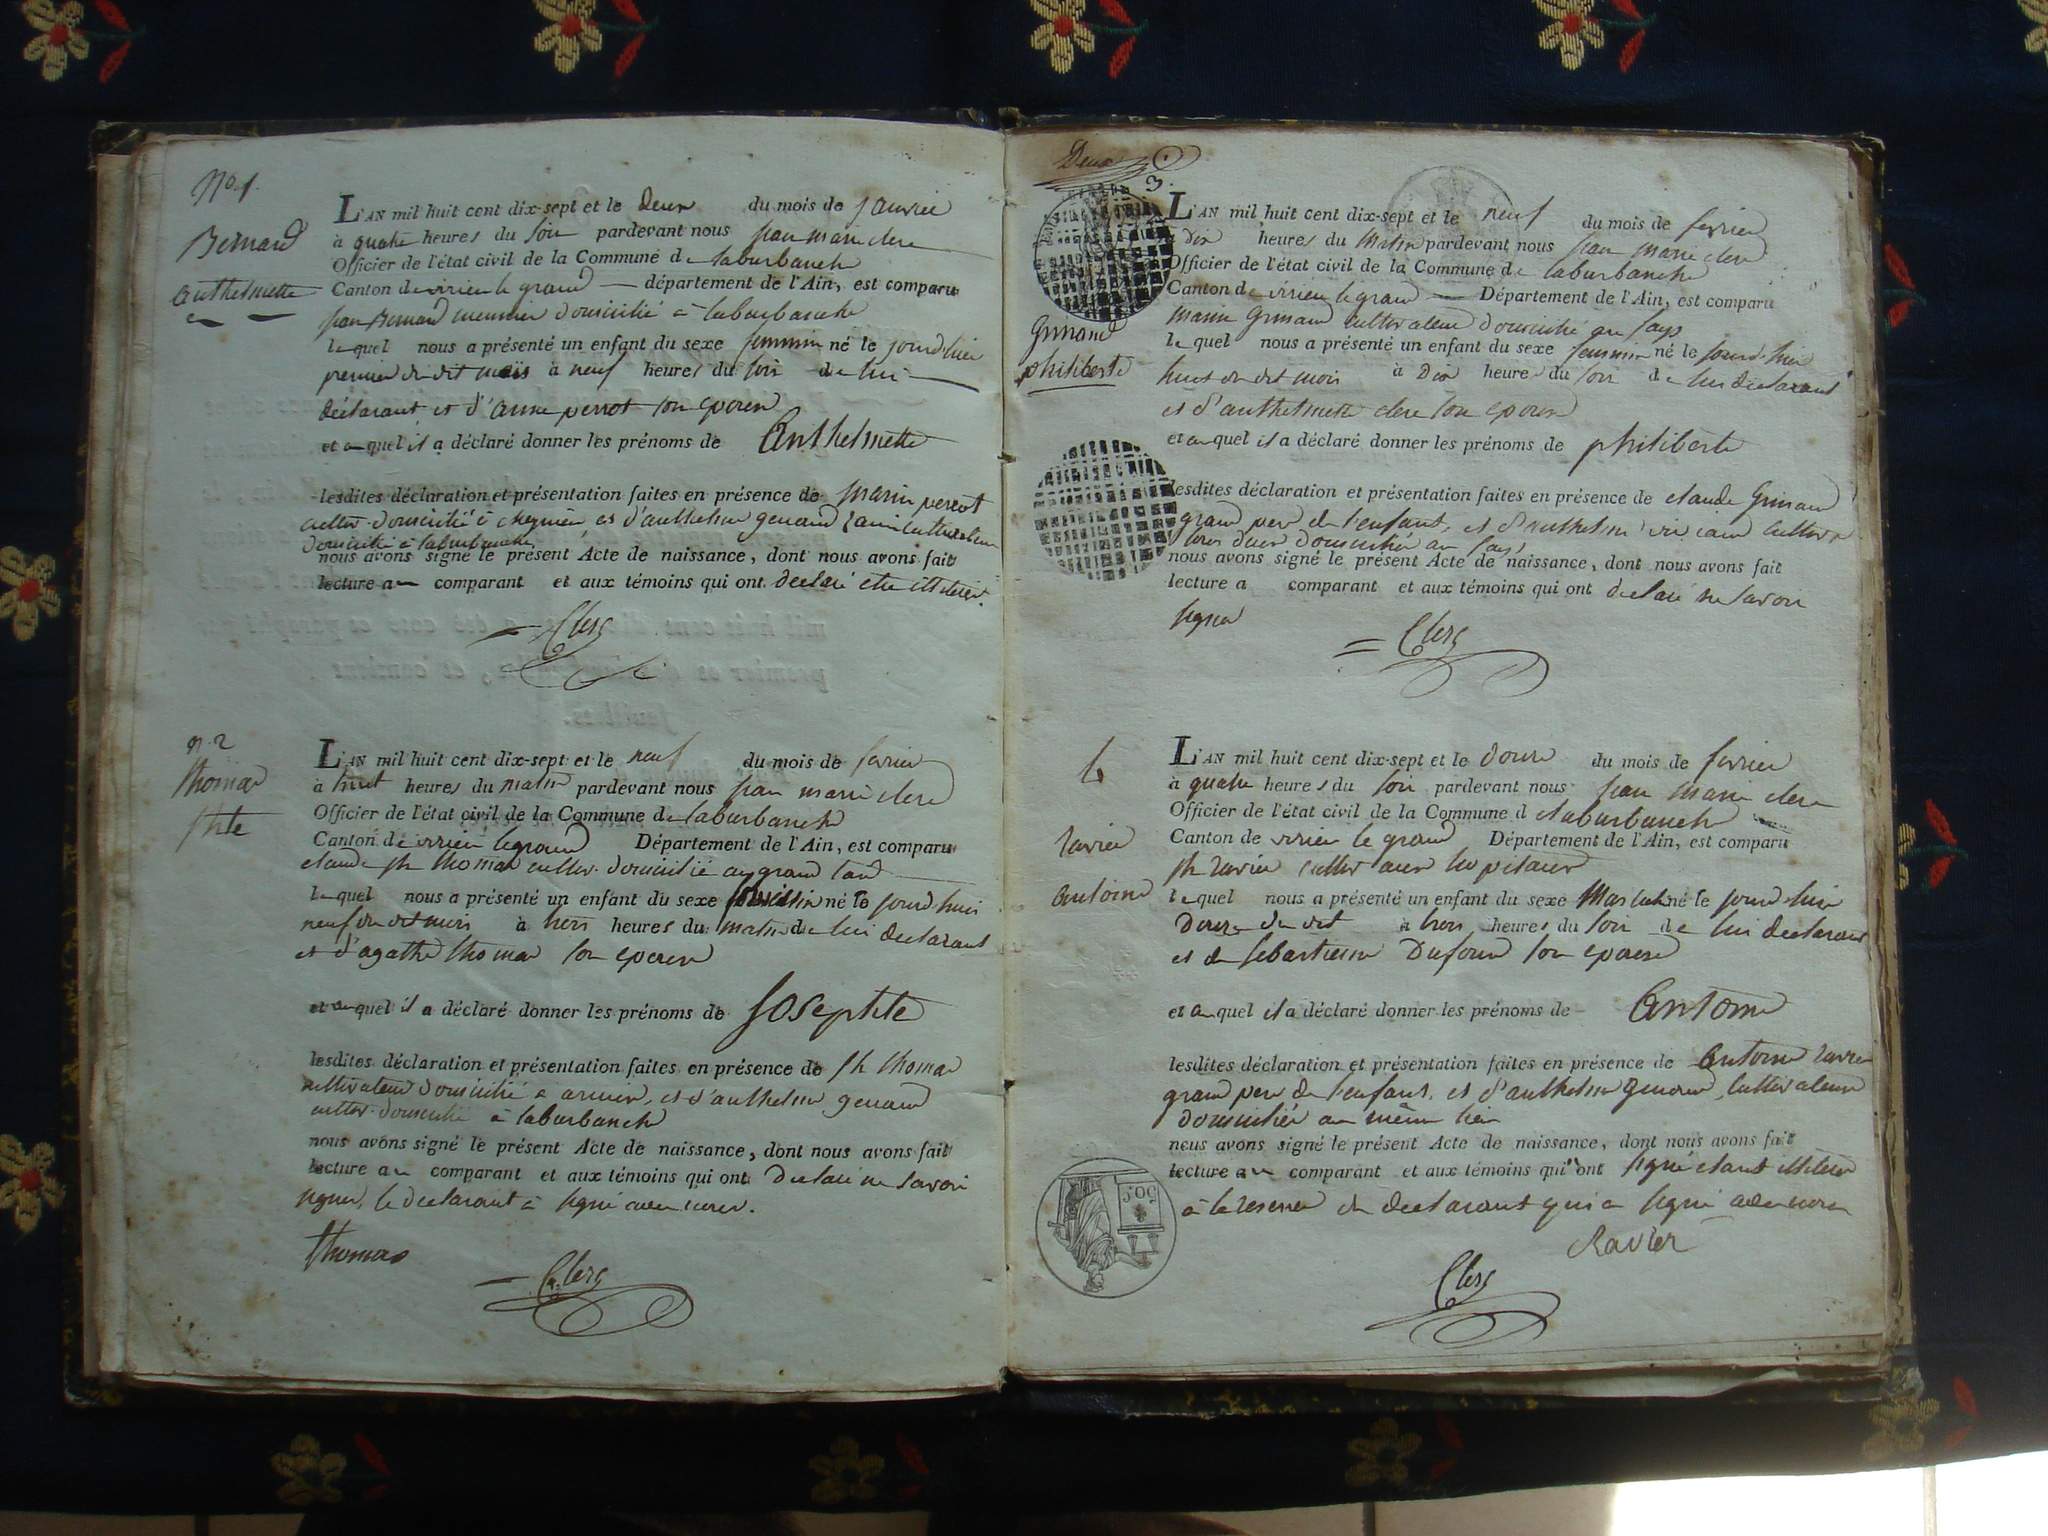 No 1.
Bernard
anthelmette
L'AN mil huit cent dix-sept et le deux du mois de janvier
à quatre heures du soir pardevant nous jean marie clerc
Officier de l'état civil de la Commune de laburbanche
Canton de virieu le grand département de l'Ain, est comparu
jean Bernard meunier domicilié à laburbanche
lequel nous a présenté un enfant du sexe feminin né le jourd'hier
premier du dit mois à neuf heures du soir de lui
déclarant et d'anne perrot son epouse
et auquel il a déclaré donner les prénoms de Anthelmette
lesdites déclaration et présentation faites en présence de marin perrot
cultiv. domicilié à et d'anthelme genand cultivateur
domicilié à laburbanche
nous avons signé le présent Acte de naissance, dont nous avons fait
lecture au comparant et aux témoins qui ont declaré etre illiterés.
Clerc
n. 2
thomas
jhte
L'AN mil huit cent dix-sept et le neuf du mois de fevrier
à huit heures du matin pardevant nous jean marie clerc
Officier de l'état civil de la Commune de laburbanche
Canton de virieu legrand Département de l'Ain, est comparu
claude jh thomas cultiv. domicilié au grand
lequel nous a présenté un enfant du sexe feminin né le jourd'huis
neuf du dit mois à trois heures du matin de lui declarant
et d'agathe thomas son epouse
et auquel il a déclaré donner les prénoms de Josephte
lesdites déclaration et présentation faites en présence de jh thomas
cultivateur domicilié a armix, et d'anthelme genand
cultiv. domicilié à laburbanche
nous avons signé le présent Acte de naissance, dont nous avons fait
lecture au comparant et aux témoins qui ont declaré ne savoir
signer, le declarant à signé avec nous.
thomas
Clerc
Deux
3.
Grinand
philiberte
L'AN mil huit cent dix-sept et le neuf du mois de fevrier
à Dix heures du matin pardevant nous jean marie clerc
Officier de l'état civil de la Commune de laburbanche
Canton de virieu le grand Département de l'Ain, est comparu
marin Grinand cultivateur domicilié au fays
lequel nous a présenté un enfant du sexe feminin né le jourd'hier
huit du dit mois à Dix heure du soir de lui declarant
et d'anthelmette clerc son epouse
et auquel il a déclaré donner les prénoms de philiberte
lesdites déclaration et présentation faites en présence de claude Grinand
grand pere de l'enfant, et d'anthelme cultiv.
tous deux domiciliés au fays
nous avons signé le présent Acte de naissance, dont nous avons fait
lecture a comparant et aux témoins qui ont declaré ne savoir
signer
Clerc
4
ravier
antoine
L'AN mil huit cent dix-sept et le douze du mois de fevrier
à quatre heures du soir pardevant nous jean marie clerc
Officier de l'état civil de la Commune d laburbanche
Canton de virieu le grand Département de l'Ain, est comparu
jh ravier cultiv. aux hopitaux
lequel nous a présenté un enfant du sexe masculin né le jourd'huis
Douze du dit à trois heures du soir de lui declarant
et de sebastienne Dufour son epouse
et auquel il a déclaré donner les prénoms de Antoine
lesdites déclaration et présentation faites en présence de Antoine ravier
grand pere de l'enfant, et d'anthelme genand, cultivateurs
domiciliés au même lieu
nous avons signé le présent Acte de naissance, dont nous avons fait
lecture au comparant et aux témoins qui ont signé etant illiterés
à la reserve du declarant qui a signé avec nous
Ravier
Clerc
50.C